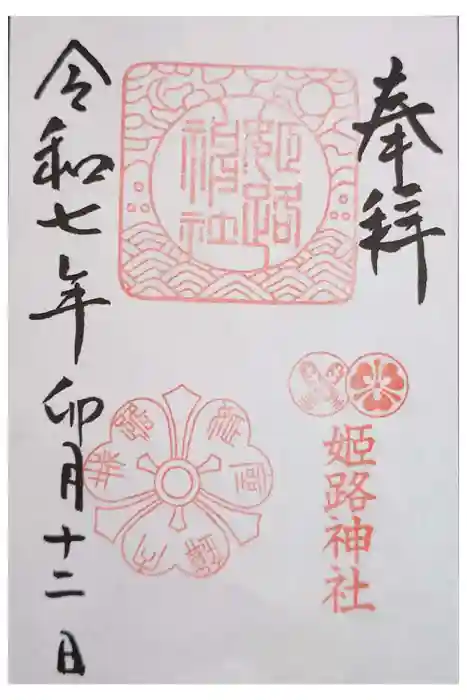 奉拝
姫路神社
姫路神社
令和七年 卯月十二日